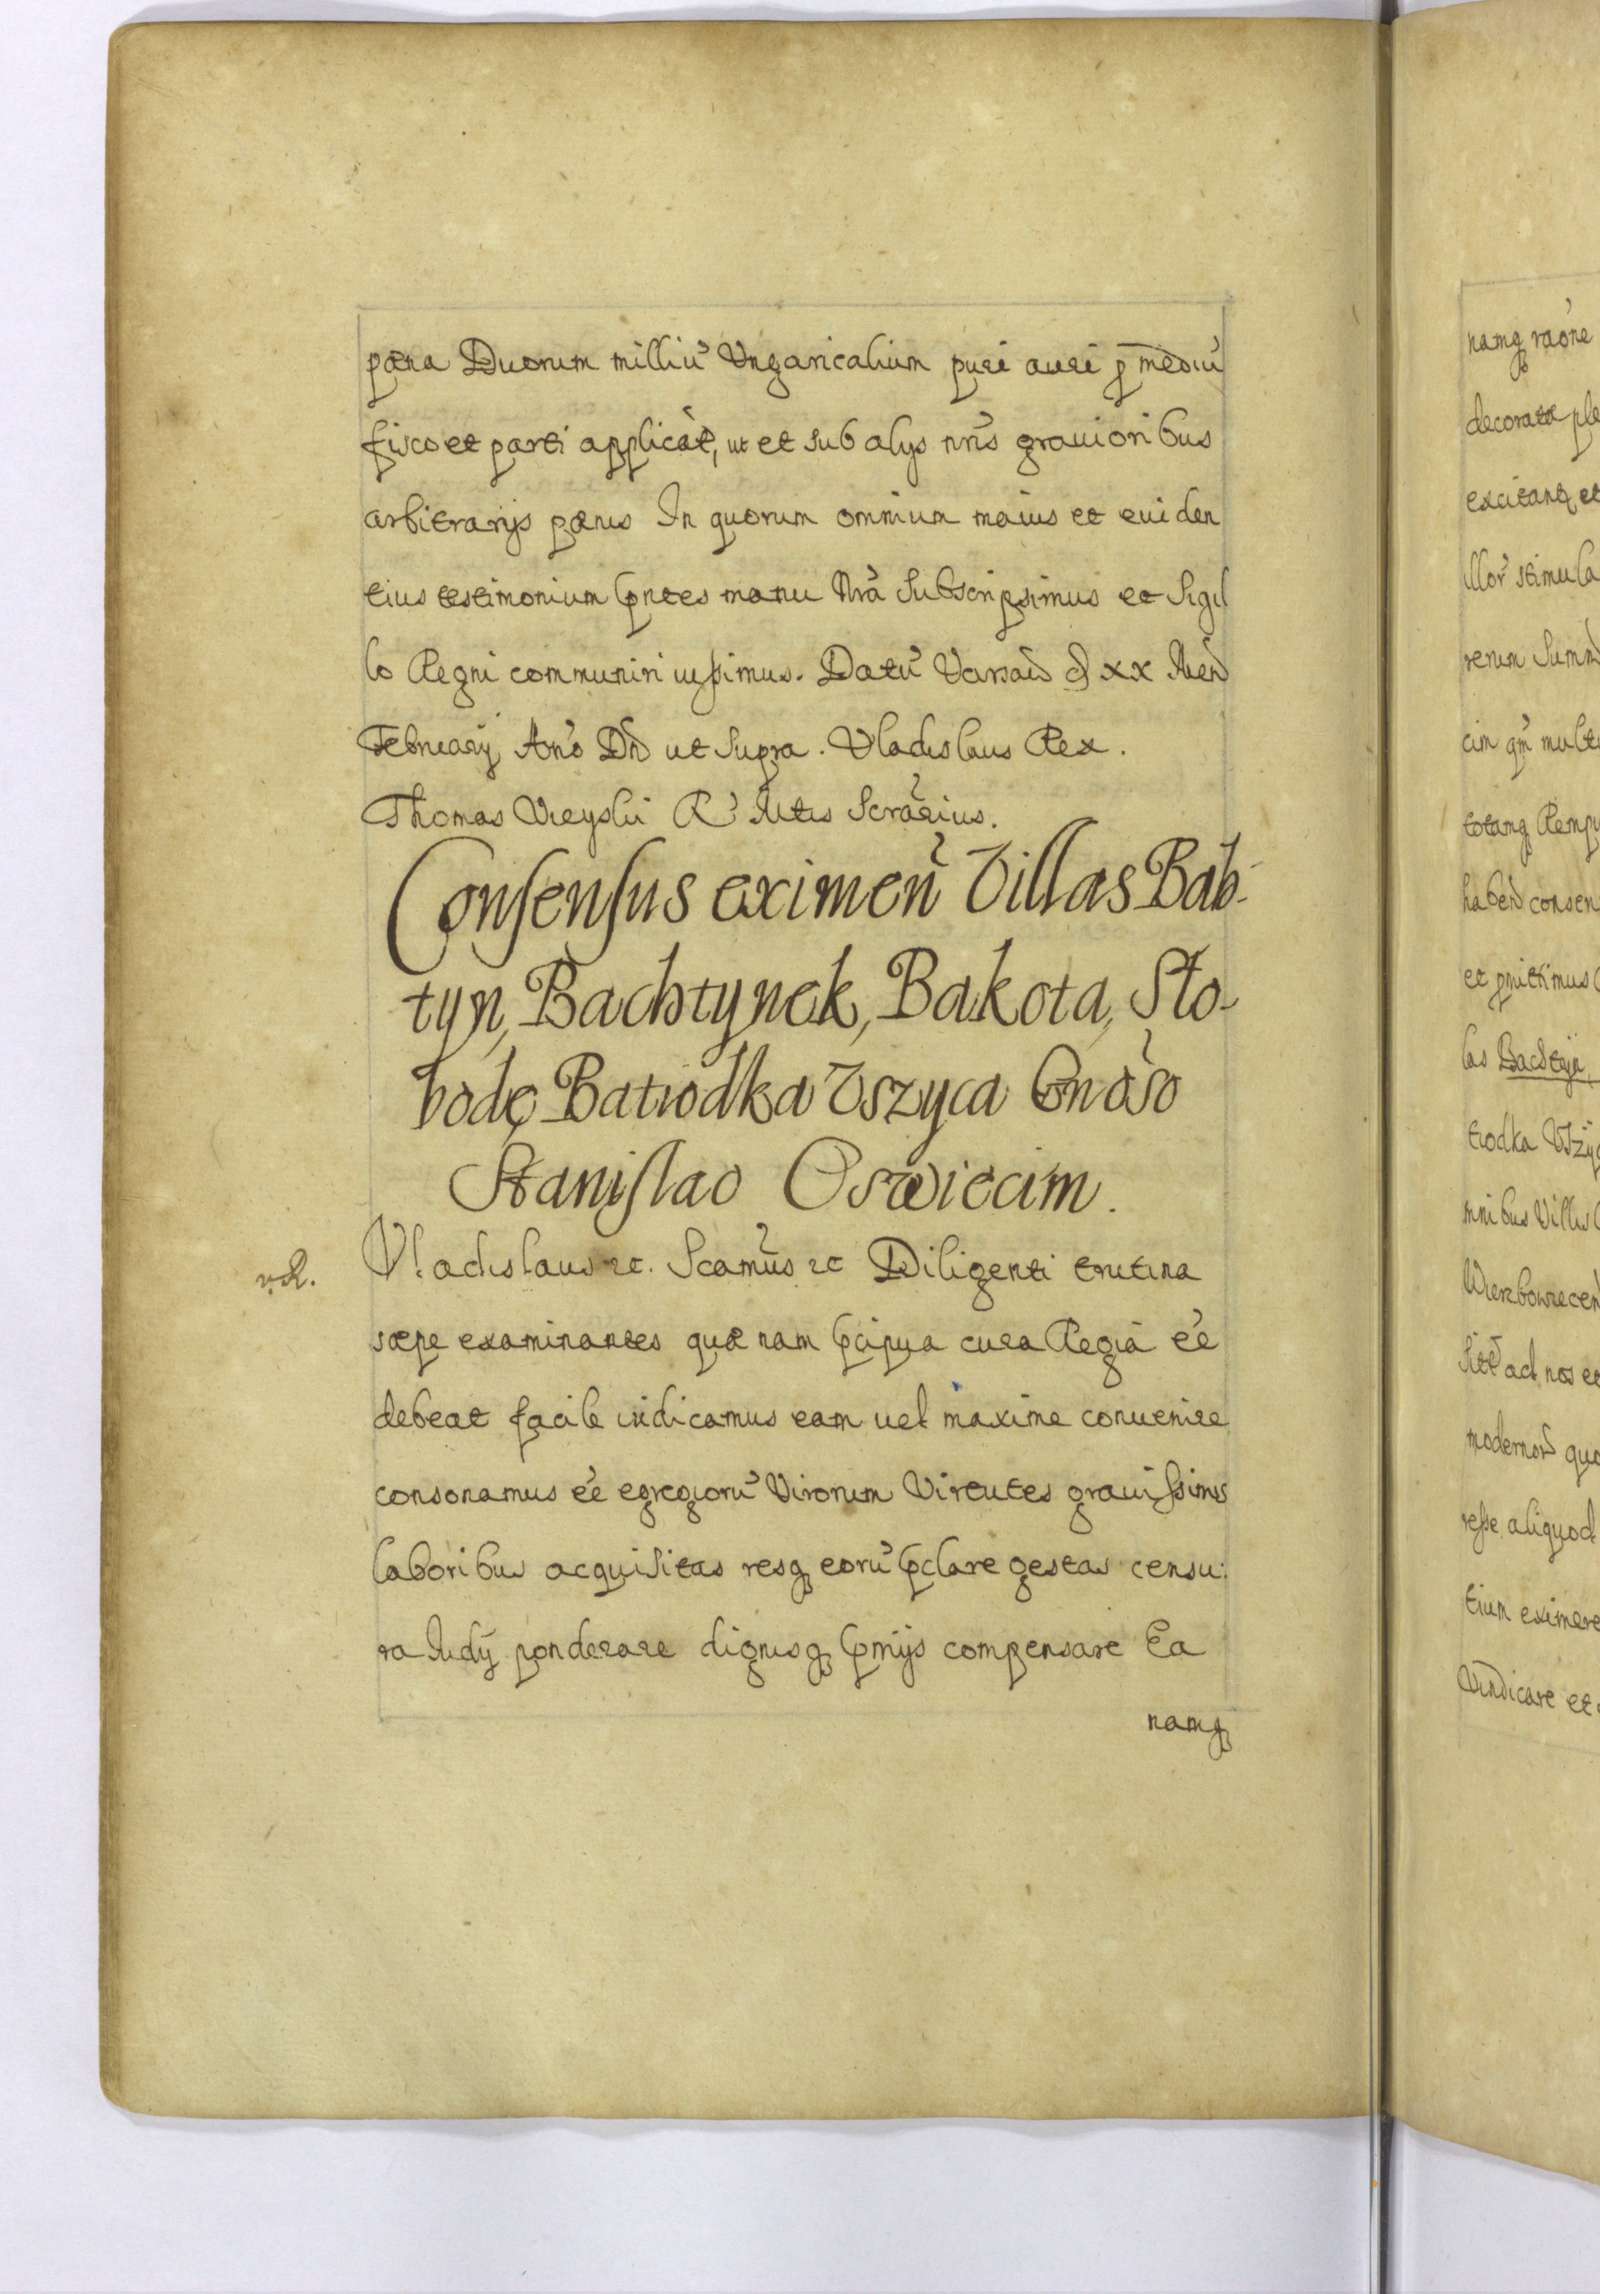 pæna Duorum milliu᷃ Vngaricalium puri auri p mediu᷃
fisco et parti applicãt, ut et sub alijs nris grauioribus
arbitrarijs pænis In quorum omnium maius et euiden
tius testimonium pntes manu Nra Subscripsimus et Sigil
lo Regni communiri iussimus. Datu᷃ Varsaẽ d xx Men
February Ano Dni ut Supra. Vladislaus Rex.
Thomas Vieyslii R Mtis Scrarius.
Consensus eximen᷃ Villas Bab-
tyn, Bachtynek, Bakota, Sło-
bodę Batwodka Vszyca Gnoso
Stanislao Oswiecim.
v.R.
Vladislaus etc. Scamus etc Diligenti trutina
sæpe examinantes quæ nam pcipua cura Regia ée
debeat facile iudicamus eam uel maxime conuenire
consonamus ée egregioru᷃ Virorum Virtutes grauissimis
laboribus acquisitas resq eoru᷃ pclare gestas censu:
ra Iudÿ ponderare dignisq pmijs compensare Ea
namq
namq raone
decoratæ
excitanq et
illor stimula
rerum
cim qm
totanq
haben consen
et
las Bachtyn,
twodka Vszy
mnibus Villis
Wierzbowiecen
ad nos et
modernor
resse aliquod
tium eximere
Vindicare et